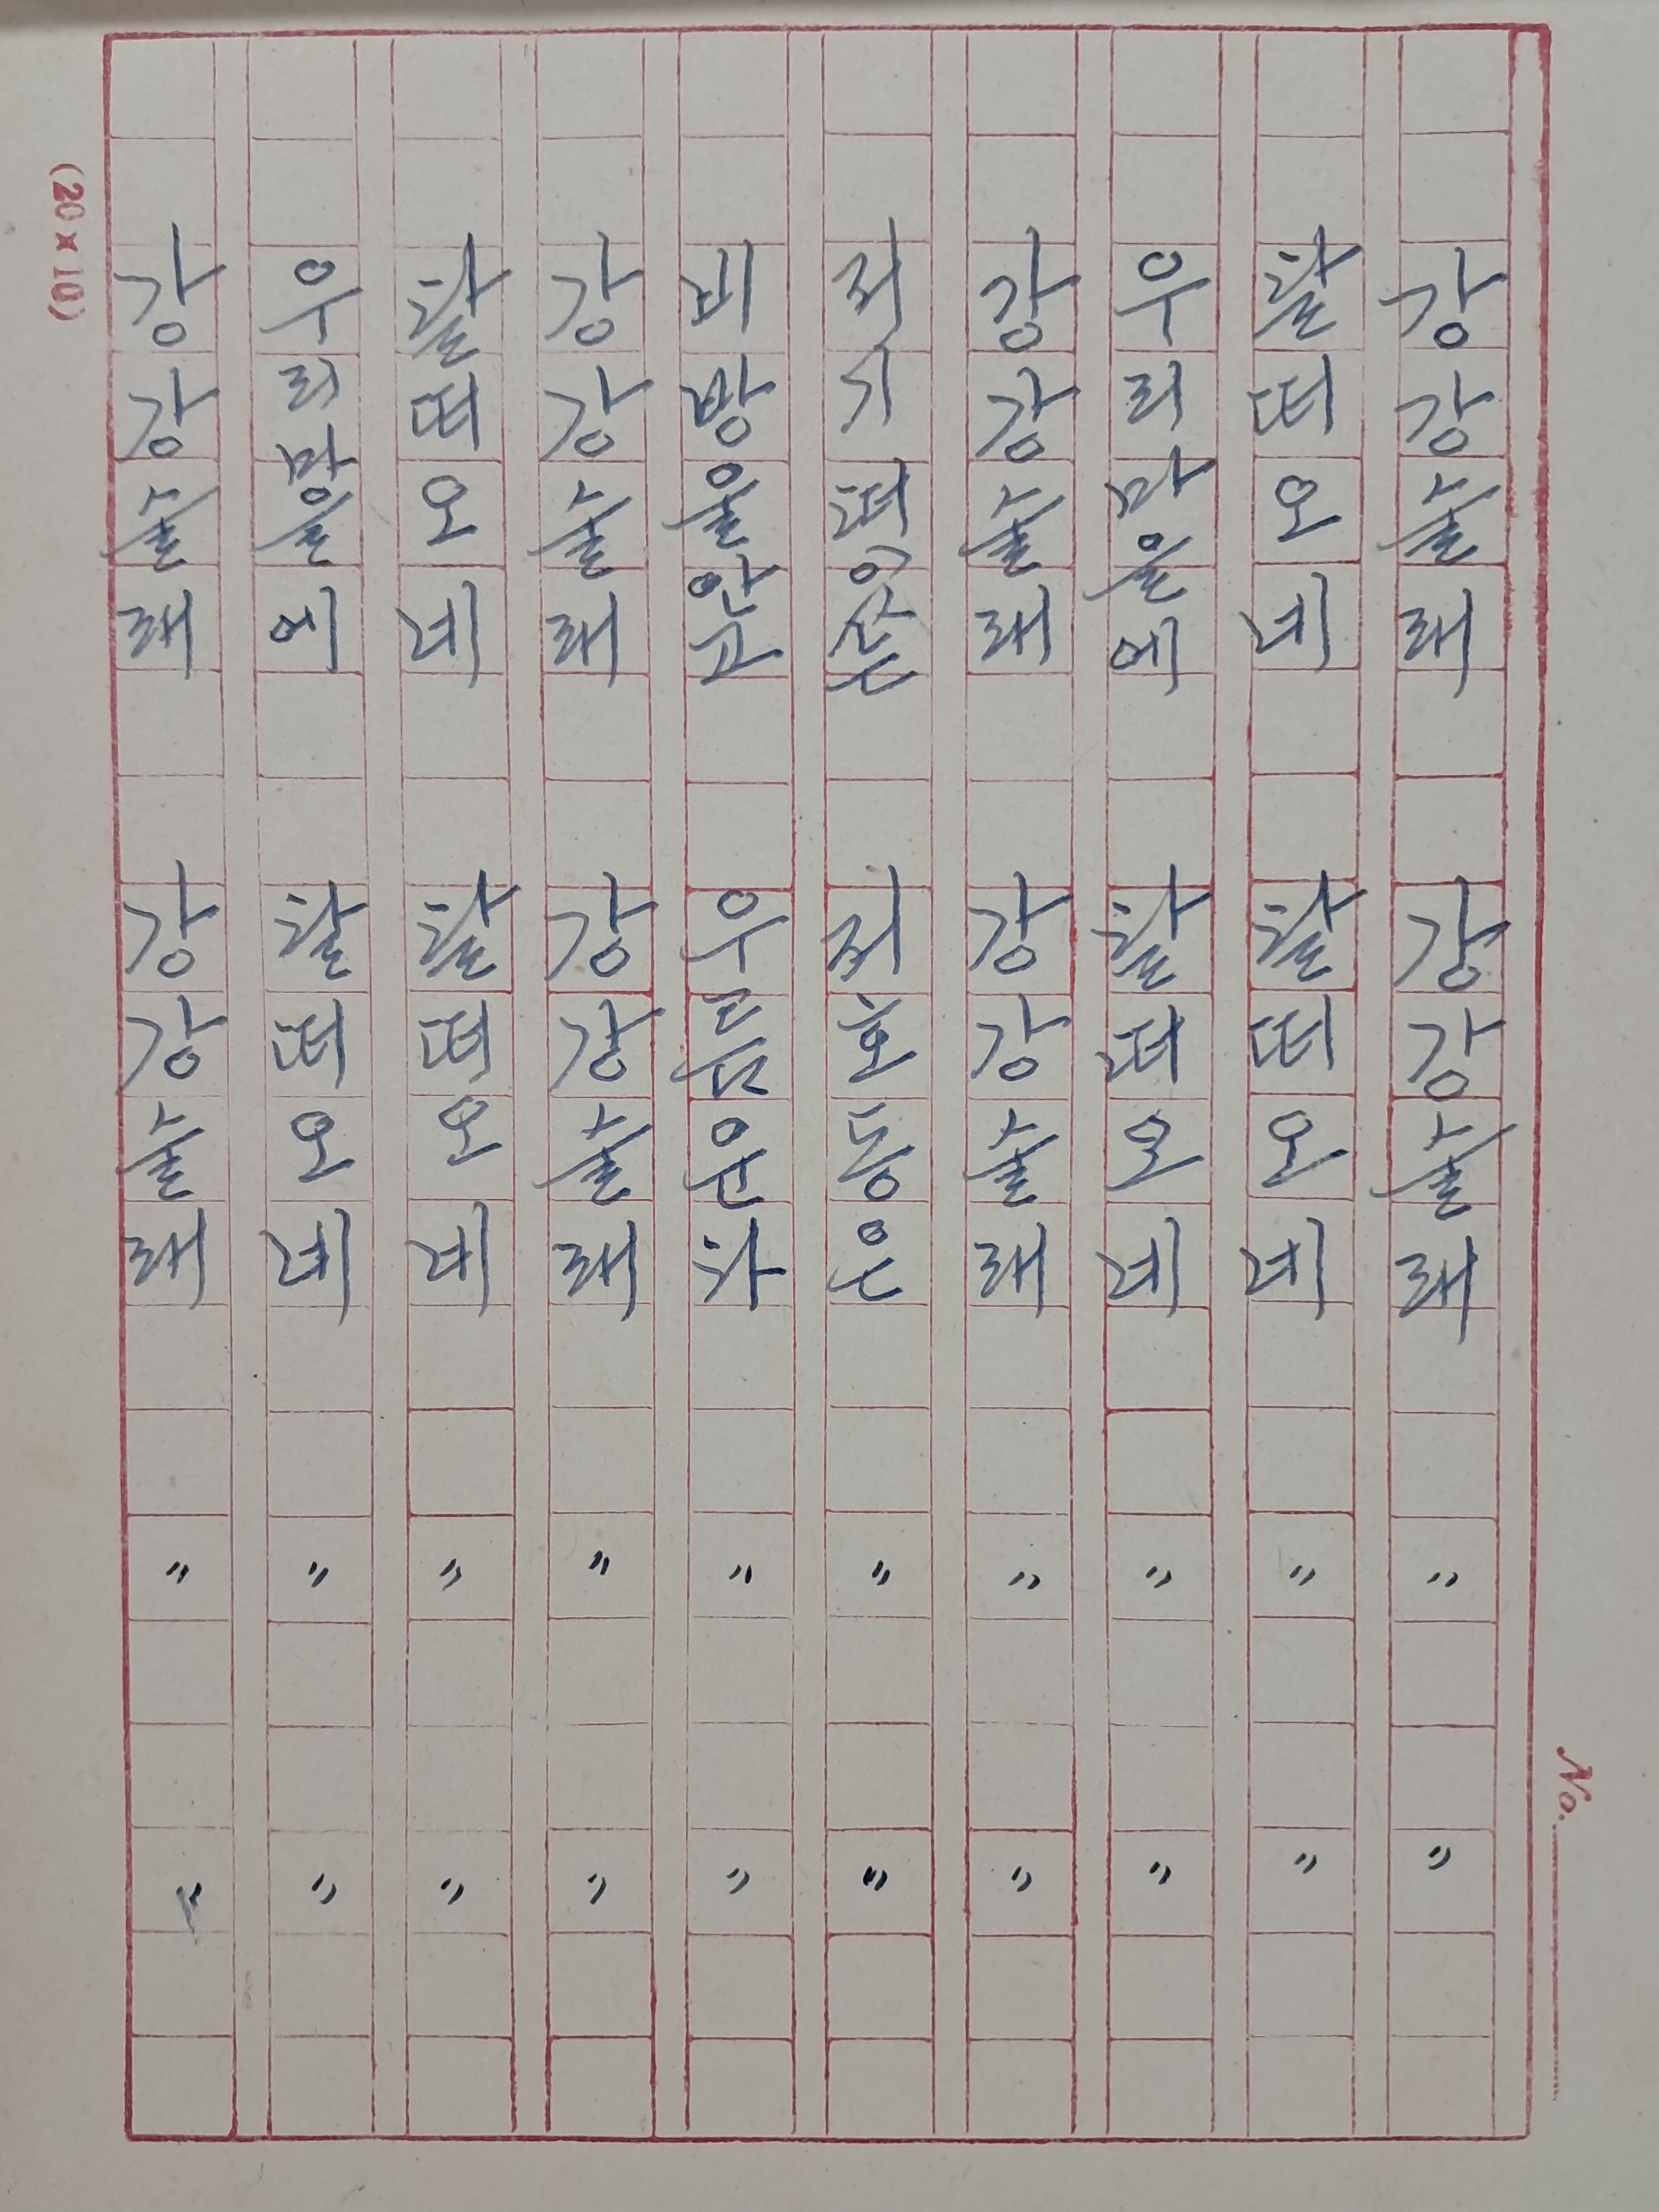 No.
강강술래 강강술래 〃 〃
달떠오네 달떠오네 〃 〃
우리마을에 달떠오네 〃 〃
강강술래 강강술래 〃 〃
저기떠있는 저호동은 〃 〃
비방울안고 우름운다 〃 〃
강강술래 강강술래 〃 〃
달떠오네 달떠오네 〃 〃
우리마을에 달떠오네 〃 〃
강강술래 강강술래 〃 〃
(20×10)